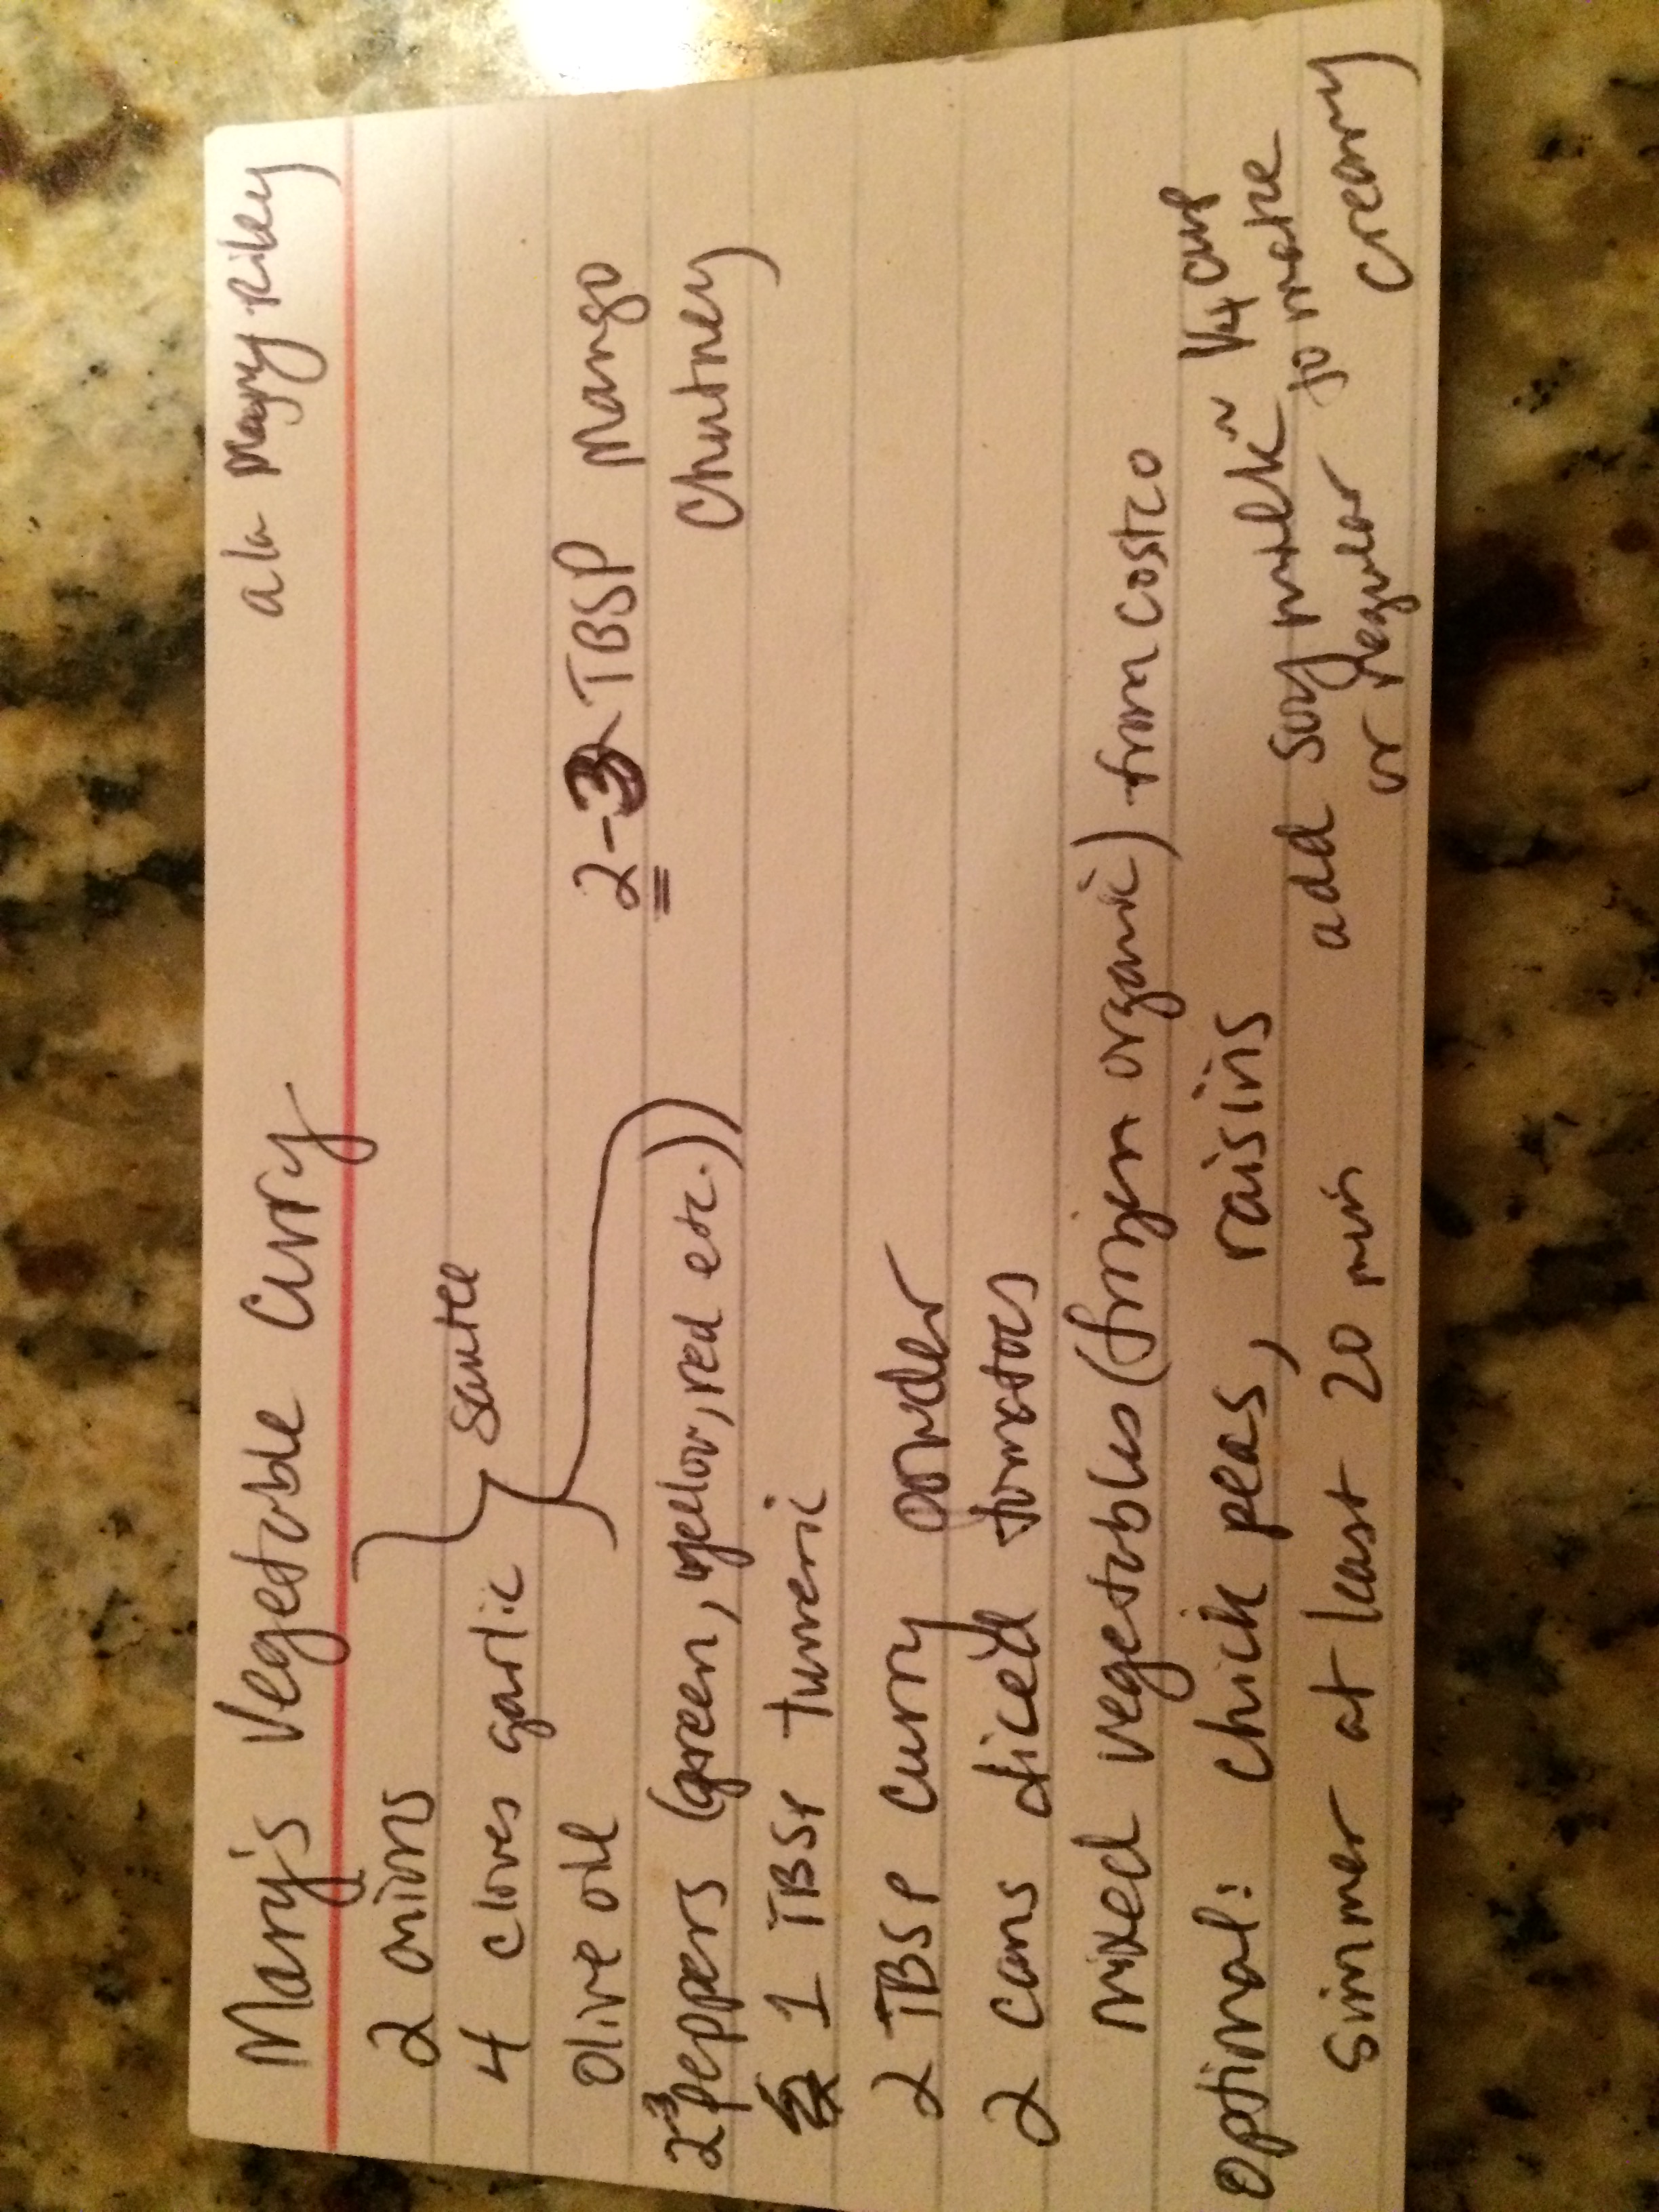 Mary's Vegetable Curry
a la Mary Riley
2 onions
4 cloves garlic
sautee
Olive oil
2-3 TBSP Mango
Chutney
2-3 peppers (green, yellow, red etc.)
1 TBSP tumeric
2 TBSP curry powder
2 cans diced tomatoes
mixed vegetables (frozen organic) from costco
Optional: chick peas, raisins
Simmer at least 20 min
add soy milk ~ 1/4 cup
or regular to make
creamy